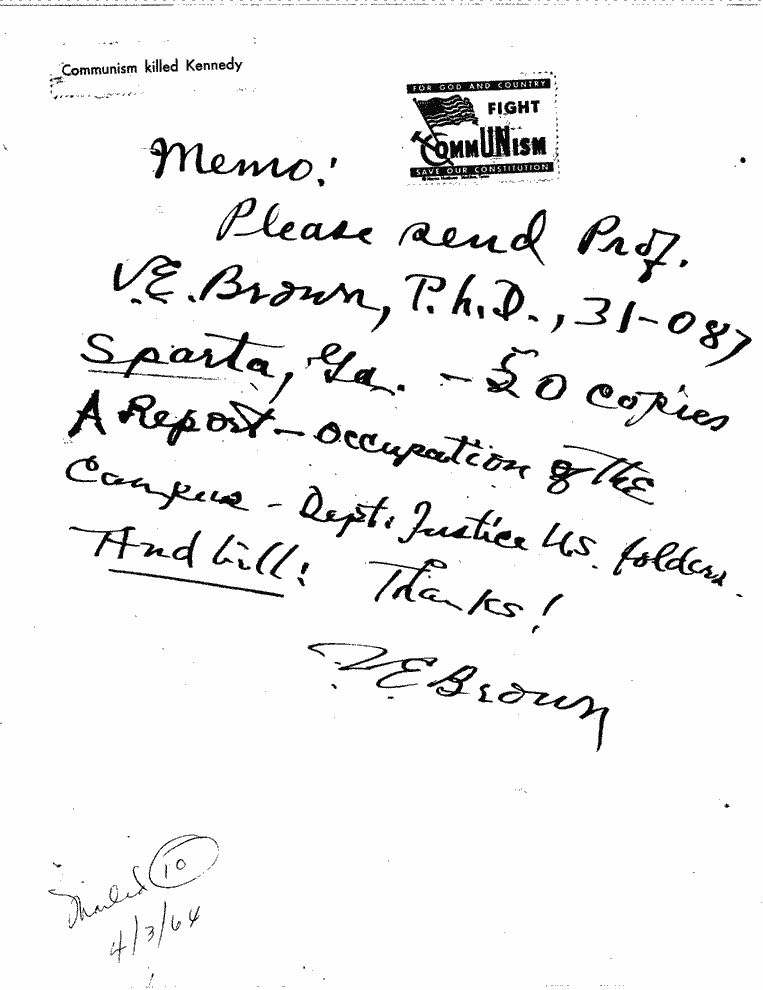 Communism killed Kennedy
FOR GOD AND COUNTRY
FIGHT
COMMUNISM
SAVE OUR CONSTITUTION
Memo:
Please send Prof.
V.E. Brown, P.h.D., 31-087
Sparta, Ga. - 50 copies
A Report - Occupation of the
Campus - Dept. Justice U.S. folders.
And bill! Thanks!
V.E. Brown
Mailed 10
4/3/64